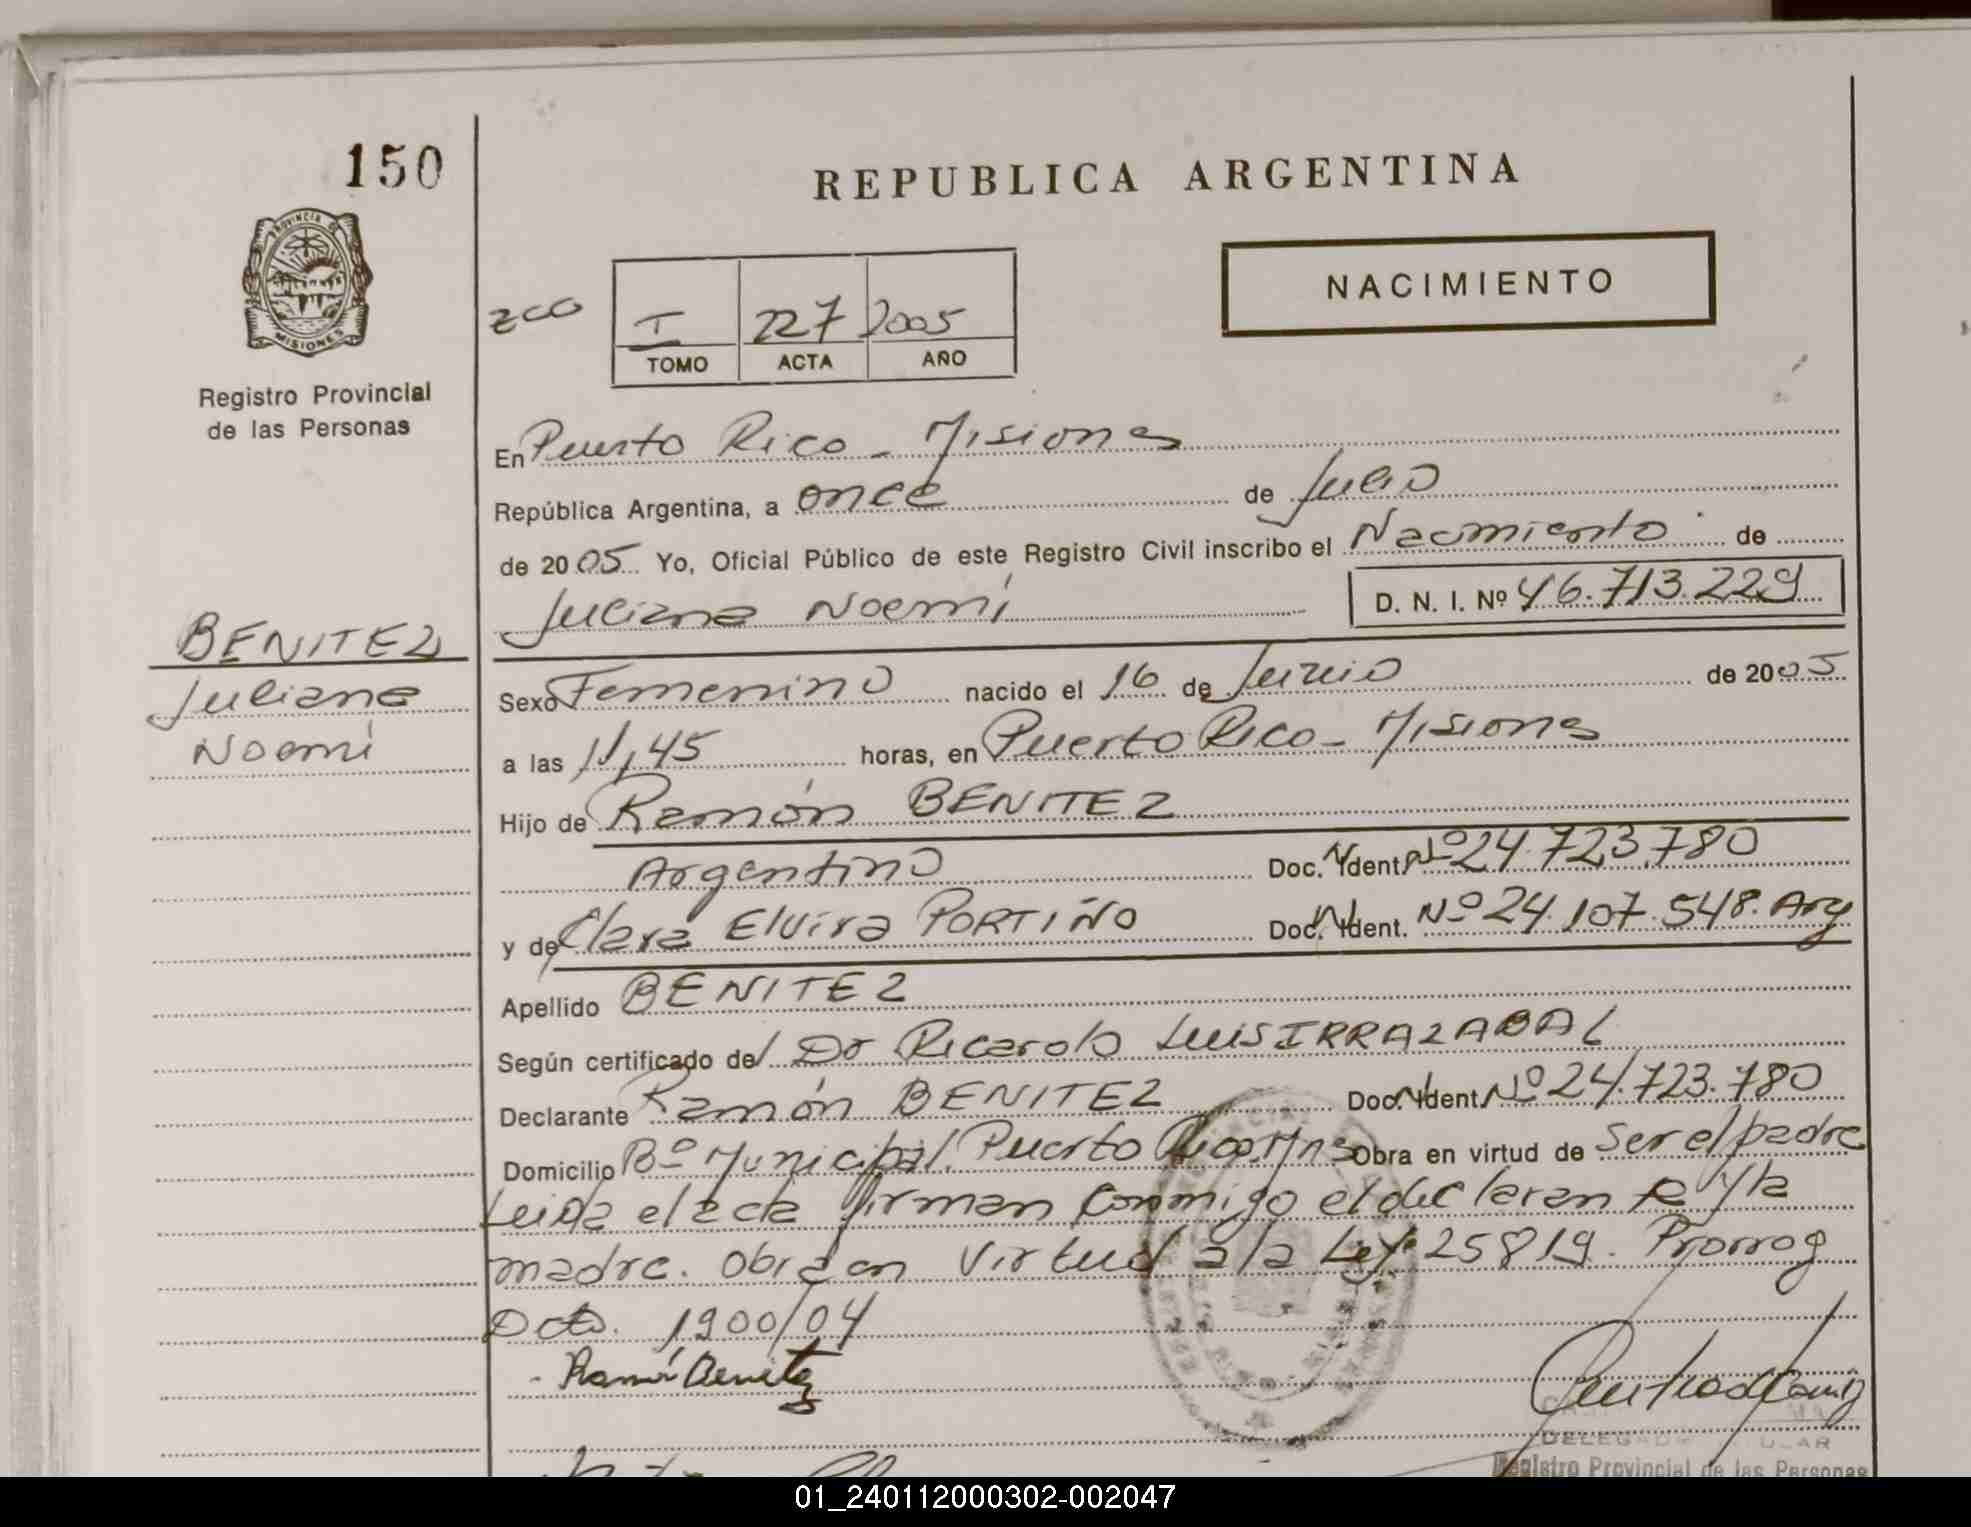 150
REPUBLICA ARGENTINA
NACIMIENTO
PROVINCIA DE
MISIONES
Registro Provincial
de las Personas
I 227 2005
TOMO ACTA AÑO
En Puerto Rico - Misiones
República Argentina, a once de Julio
de 2005 Yo, Oficial Público de este Registro Civil inscribo el Nacimiento de
Juliana Noemí D. N. I. Nº 46.713.229
BENITEZ
Juliana
Noemí
Sexo Femenino nacido el 16 de Junio de 2005
a las 11,45 horas, en Puerto Rico - Misiones
Hijo de Ramón BENITEZ
Argentino Doc. Ident. Nº 24.723.780
y de Clara Elvira PORTIÑO Doc. Ident. Nº 24.107.548. Arg
Apellido BENITEZ
Según certificado del Dr Ricardo Luis IRRAZABAL
Declarante Ramón BENITEZ Doc. Ident. Nº 24.723.780
Domicilio Bº Municipal. Puerto Rico. Mnes Obra en virtud de Ser el padre
Leida el acta firman conmigo el declarante y la
madre. Obra en virtud a la Ley 25819. Prorrog
Dcto. 1900/04
Ramón Benitez
Registro Provincial de las Personas
01_240112000302-002047